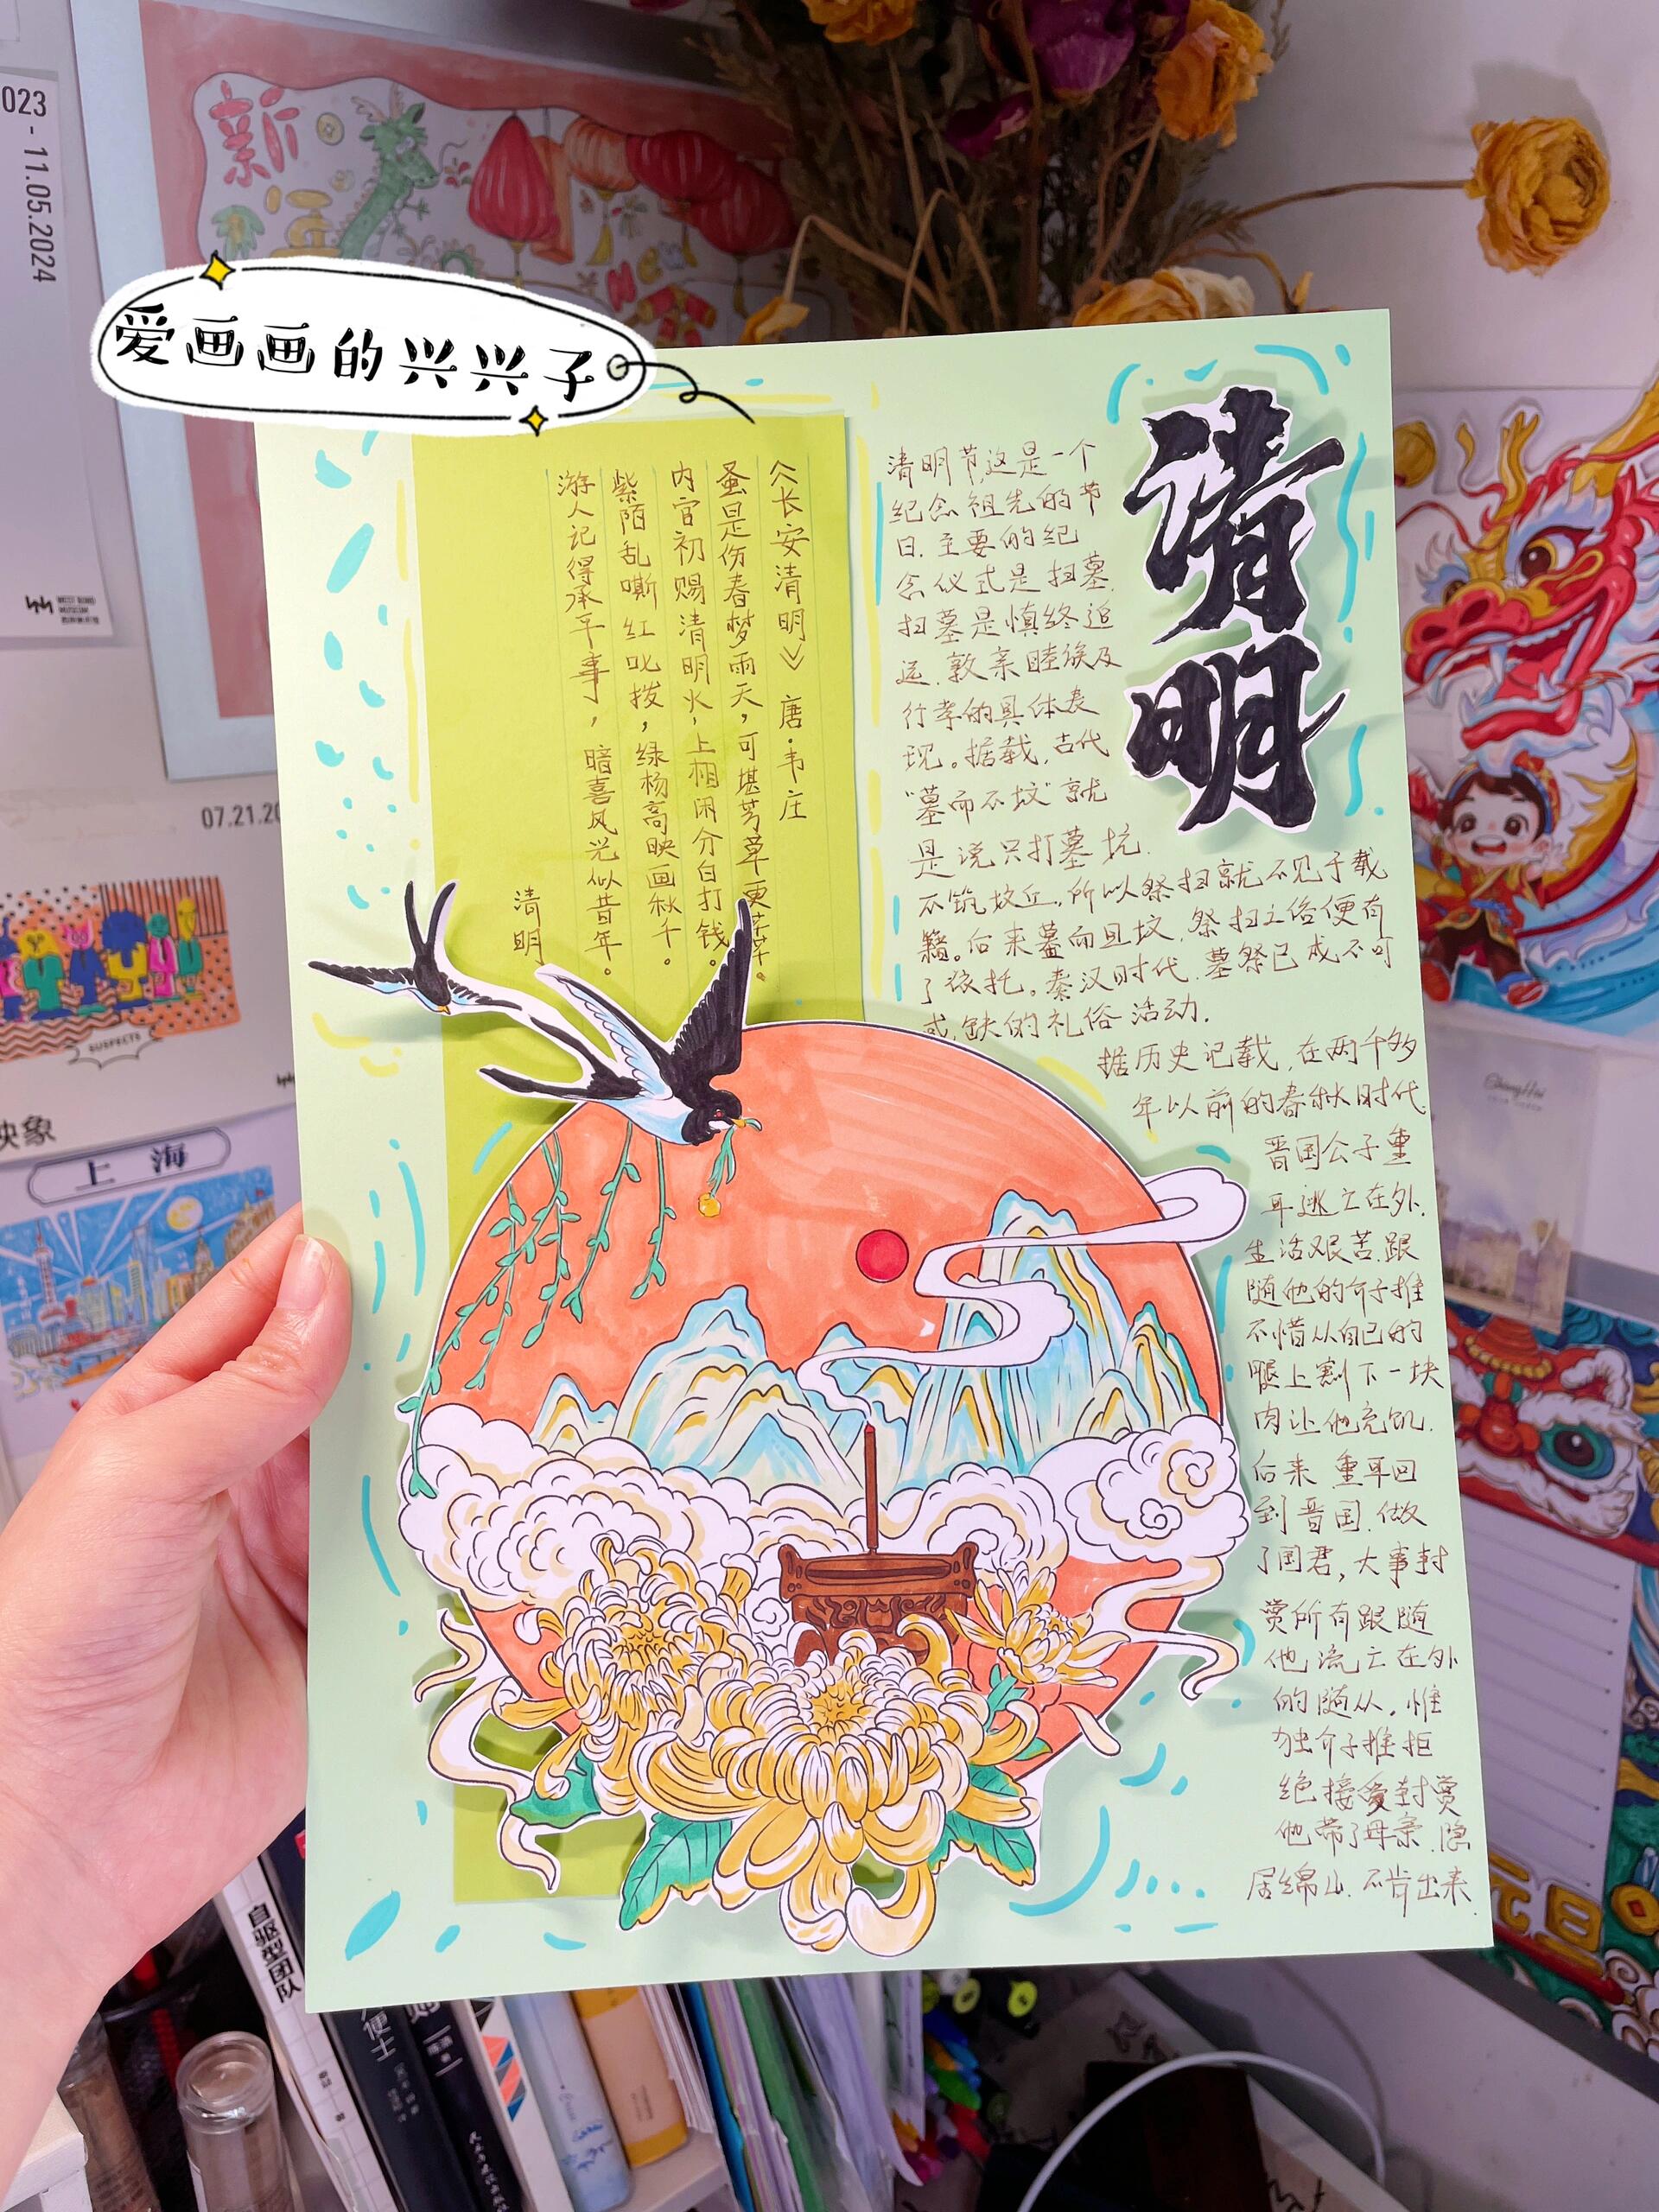 023 - 11.05.2024
新
爱画画的兴兴子
清明
《长安清明》 唐·韦庄
蚤是伤春梦雨天，可堪芳草更芊芊。
内官初赐清明火，上相闲分白打钱。
紫陌乱嘶红叱拨，绿杨高映画秋千。
游人记得承平事，暗喜风光似昔年。
清明
清明节,这是一个
纪念祖先的节
日.主要的纪
念仪式是扫墓.
扫墓是慎终追
远.敦亲睦族及
行孝的具体表
现。据载,古代
“墓而不坟”就
是说只打墓坑.
不筑坟丘,所以祭扫就不见于载
籍。后来墓而且坟,祭扫之俗便有
了依托。秦汉时代.墓祭已成不可
或缺的礼俗活动.
据历史记载,在两千多
年以前的春秋时代
晋国公子重
耳逃亡在外.
生活艰苦.跟
随他的介子推
不惜从自己的
腿上割下一块
肉让他充饥.
后来重耳回
到晋国.做
了国君,大事封
赏所有跟随
他流亡在外
的随从,惟
独介子推拒
绝接受封赏
他带了母亲.隐
居绵山.不肯出来.
07.21.20
SUSPECTS
映象
上海
自驱型团队
元旦